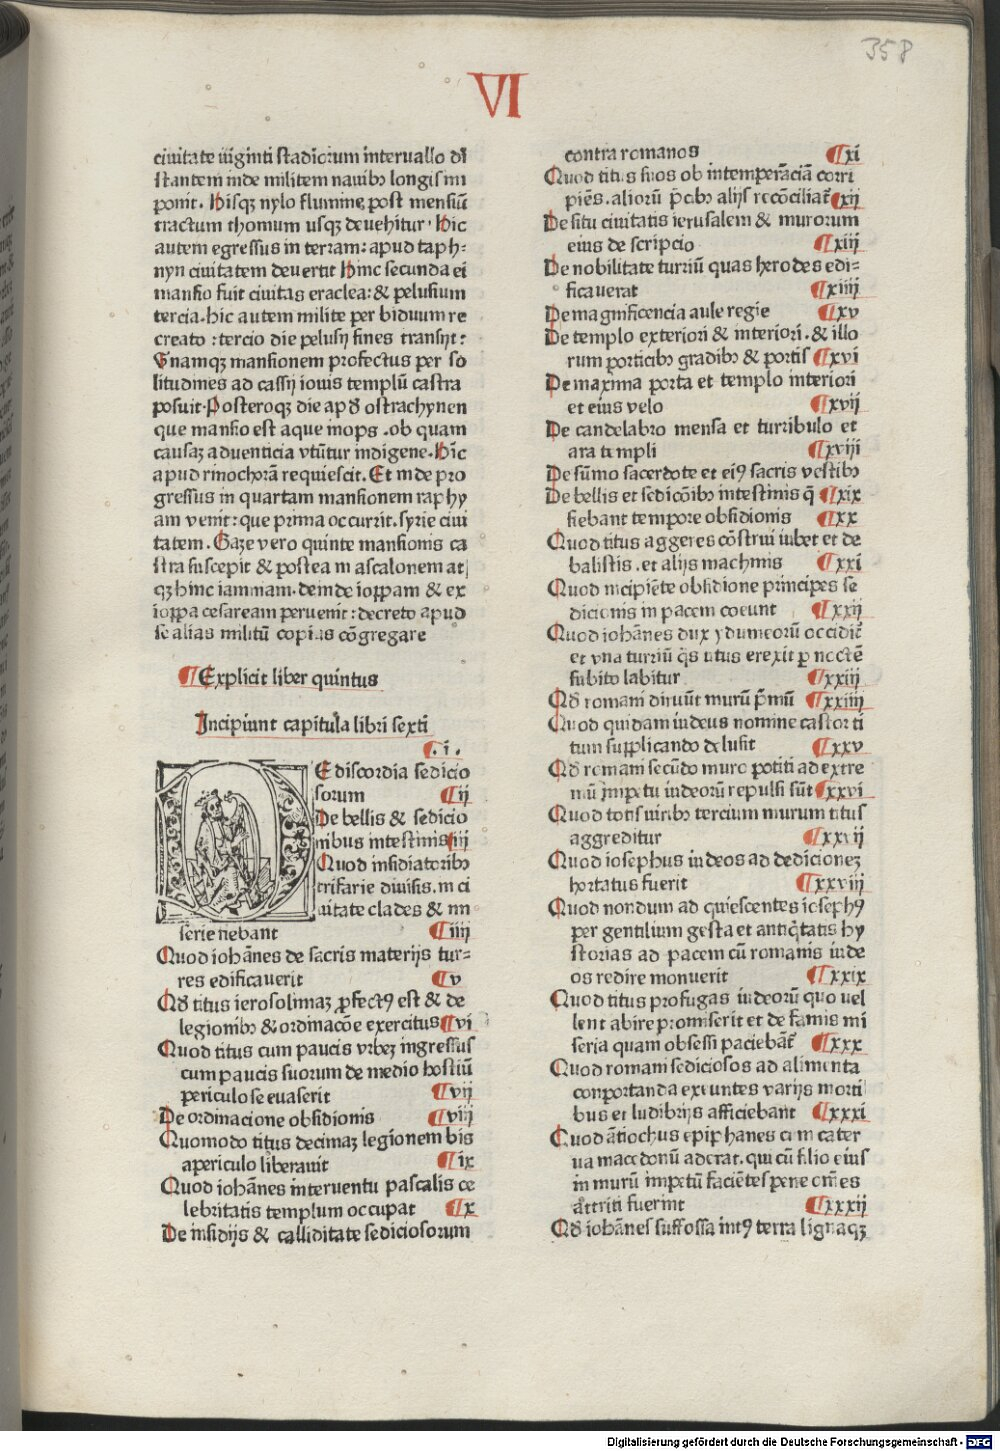 358
VI
ciuitate uiginti stadiorum interuallo dī
stantem inde militem nauibꝫ longis im
ponit. Hisqꝫ nylo flumine post mensiū
tractum thomum usqꝫ deuehitur. Hic
autem egressus in terram: apud taph⸗
nyn ciuitatem deuertit Hinc secunda ei
mansio fuit ciuitas eraclea: & pelusium
tercia. hic autem milite per biduum re
creato: tercio die pelusij fines transijt:
Vnamqꝫ mansionem profectus per so
litudines ad cassij iouis templū castra
posuit. Posteroqꝫ die apđ ostrachynen
que mansio est aque inops. ob quam
causaꝫ aduenticia vtūtur indigene. Hīc
apud rinochorā requiescit. Et inde pro
gressus in quartam mansionem raphy
am venit: que prima occurrit. syrie ciui
tatem. Gaze vero quinte mansionis ca
stra suscepit & postea in ascalonem at
qꝫ hinc iamniam. deinde ioppam & ex
ioppa cesaream peruenit: decreto apud
se alias militū copias cōgregare
¶Explicit liber quintus
Incipiunt capitula libri sexti
¶.i.
DE discordia sedicio
sorum ¶ii
De bellis & sedicio
nibus intestinis¶iii
Quod insidiatoribꝫ
trifarie diuisis. in ci
uitate clades & mi
serie fiebant ¶iiii
Quod iohānes de sacris materijs tur⸗
res edificauerit ¶v
Qđ titus ierosolimaꝫ ꝓfectꝰ est & de
legionibꝫ & ordinacōe exercitus ¶vi
Quod titus cum paucis vrbeꝫ ingressus
cum paucis suorum de medio hostiū
periculo se euaserit ¶vii
De ordinacione obsidionis ¶viii
Quomodo titus decimaꝫ legionem bis
a periculo liberauit ¶ix
Quod iohānes interuentu pascalis ce
lebritatis templum occupat ¶x
De insidijs & calliditate sediciosorum
contra romanos ¶xi
Quod titus suos ob intemperāciā corri
piēs. aliorū p̄cibꝫ alijs recōciliat᷑ ¶xii
De situ ciuitatis ierusalem & murorum
eius descripcio ¶xiii
De nobilitate turriū quas herodes edi⸗
ficauerat ¶xiiii
De magnificencia aule regie ¶xv
De templo exteriori & interiori. & illo
rum porticibꝫ gradibꝫ & portis ¶xvi
De maxima porta et templo interiori
et eius velo ¶xvii
De candelabro mensa et turribulo et
ara templi ¶xviii
De sūmo sacerdote et eiꝰ sacris vestibꝫ
De bellis et sedicōibꝫ intestinis q̄ ¶xix
fiebant tempore obsidionis ¶xx
Quod titus aggeres cōstrui iubet et de
balistis. et alijs machinis ¶xxi
Quod incipiēte obsidione principes se
dicionis in pacem coeunt ¶xxii
Quod iohānes dux ydumeorū occidit᷑
et vna turriū q̄s titus erexit ꝑ noctē
subito labitur ¶xxiii
Qđ romani diruūt murū p̄mū ¶xxiiii
Quod quidam iudeus nomine castor ti
tum supplicando delusit ¶xxv
Qđ romani secūdo muro potiti ad extre
mū impetu iudeorū repulsi sūt ¶xxvi
Quod totis uiribꝫ tercium murum titus
aggreditur ¶xxvii
Quod iosephus iudeos ad dedicioneꝫ
hortatus fuerit ¶xxviii
Quod nondum ad quiescentes iosephꝰ
per gentilium gesta et antiq̄tatis hy
storias ad pacem cū romanis iude
os redire monuerit ¶xxix
Quod titus profugas iudeorū quo uel
lent abire promiserit et de famis mi
seria quam obsessi paciebāt᷑ ¶xxx
Quod romani sediciosos ad alimenta
conportanda exeuntes varijs morti
bus et ludibrijs afficiebant ¶xxxi
Quod ātiochus epiphanes cum cater
ua macedonū aderat. qui cū filio eius
in murū impetū faciētes pene om̄es
attriti fuerint ¶xxxii
Qđ iohānes suffossa intꝰ terra lignaqꝫ
Digitalisierung gefördert durch die Deutsche Forschungsgemeinschaft - DFG